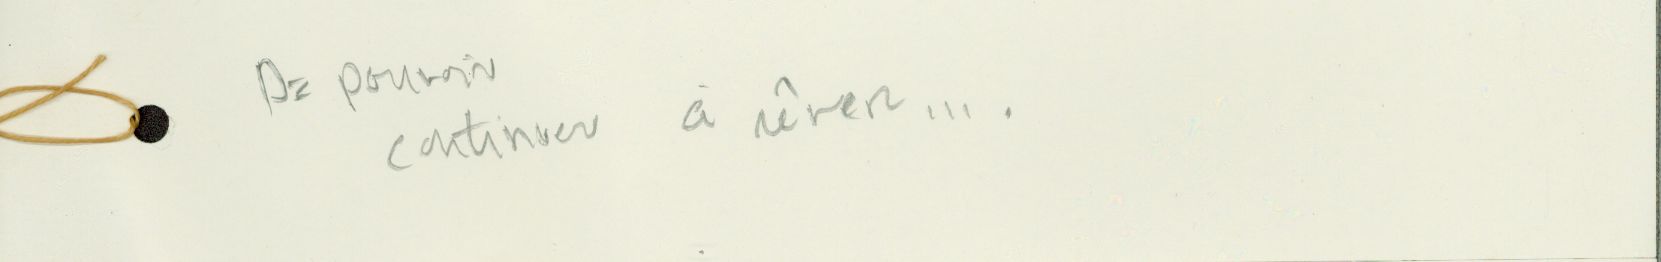 De pouvoir
continuer à rêver... .